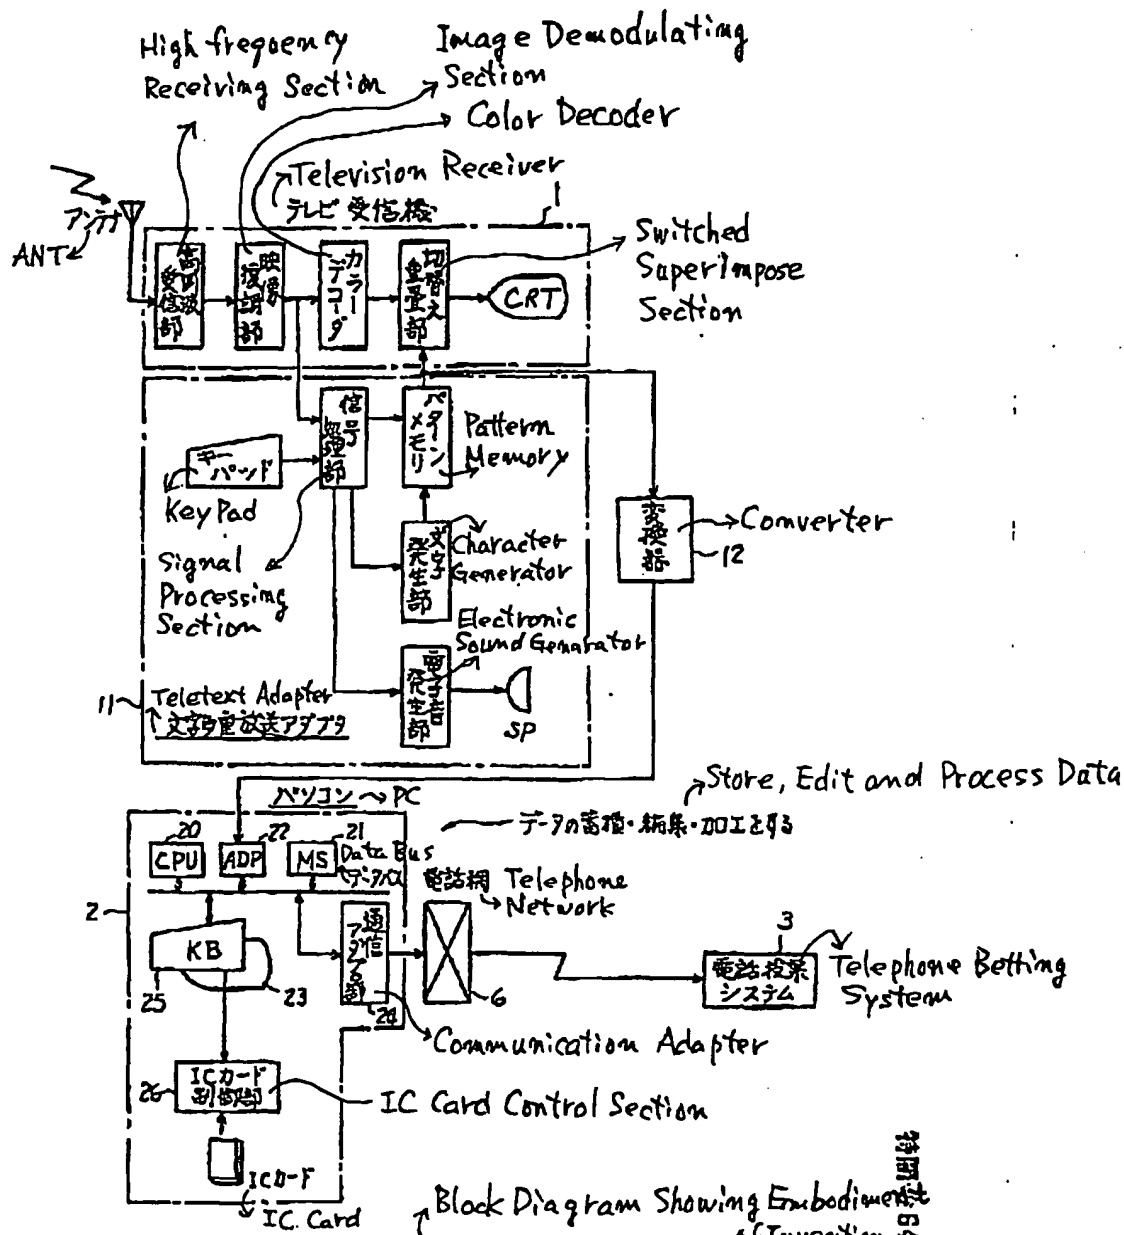 High frequency
Receiving Section
Image Demodulating
Section
Color Decoder
Television Receiver
テレビ受信機
1
アンテナ
ANT
高周波
受信部
映像
復調部
カラー
デコーダ
切替え
重畳部
CRT
Switched
Superimpose
Section
信号
処理部
パターン
メモリ
Pattern
Memory
キー
パッド
Key Pad
Signal
Processing
Section
文字
発生部
Character
Generator
変換器
Converter
12
Electronic
Sound Genarator
電子音
発生部
SP
11
Teletext Adapter
文字多重放送アダプタ
パソコン PC
Store, Edit and Process Data
データの蓄積・編集・加工をする
20
22
21
CPU
ADP
MS
Data Bus
データバス
電話網 Telephone
Network
2
KB
25
23
通信
アダプタ部
24
6
3
電話投票
システム
Telephone Betting
System
Communication Adapter
26
ICカード
制御部
IC Card Control Section
ICカード
IC. Card
Block Diagram Showing Embodiment
of Invention